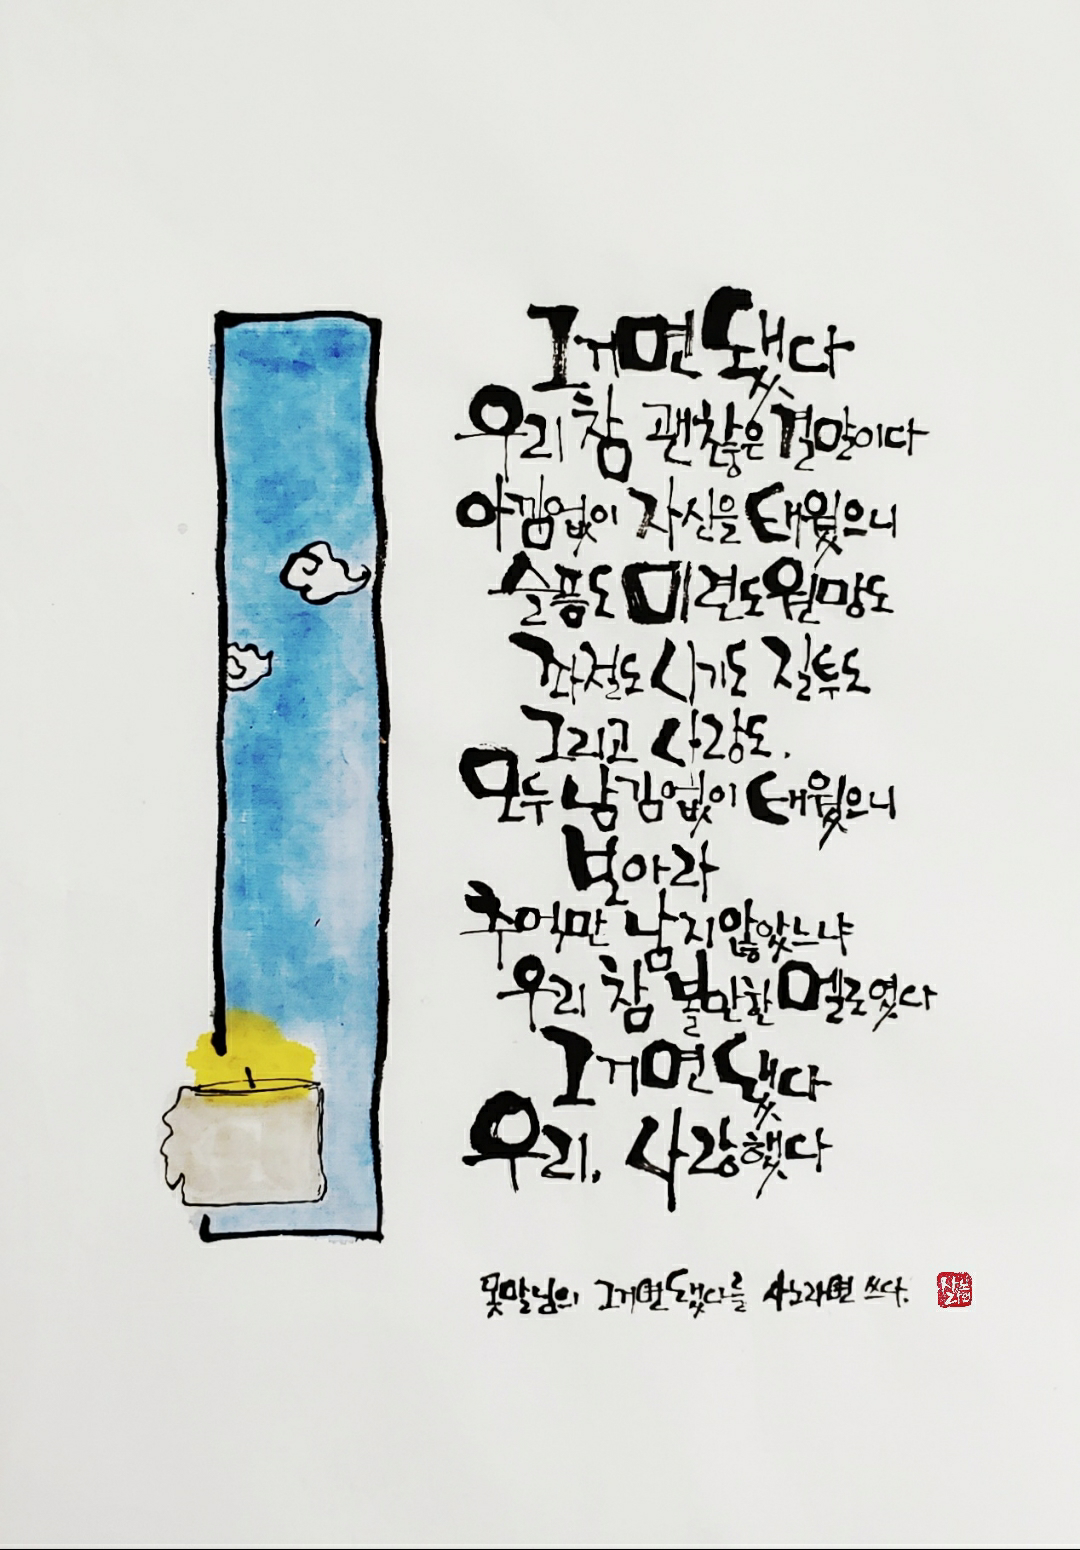 그거면 됐다
우리 참 괜찮은 결말이다
아낌없이 자신을 태웠으니
슬픔도 미련도 원망도
좌절도 시기도 질투도
그리고 사랑도.
모두 남김없이 태웠으니
보아라
추억만 남지 않았느냐
우리 참 볼만한 멜로였다
그거면 됐다
우리, 사랑했다
못말님의 그거면 됐다를 사노라면 쓰다.
사노라면